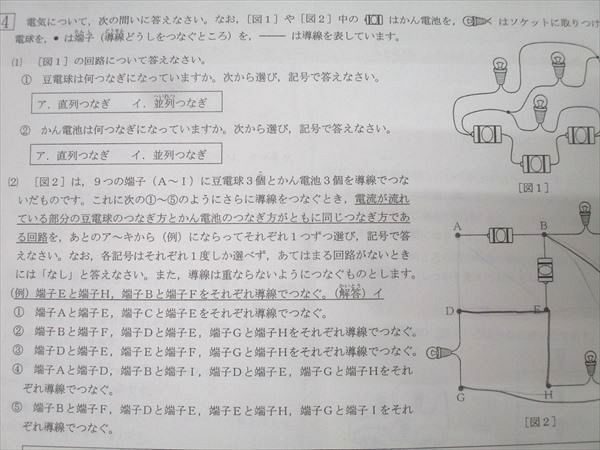 4 電気について，次の問いに答えなさい。なお，［図1］や［図2］中の はかん電池を， はソケットに取りつけ
電球を，●は端子（導線どうしをつなぐところ）を，――は導線を表しています。
⑴ ［図1］の回路について答えなさい。
① 豆電球は何つなぎになっていますか。次から選び，記号で答えなさい。
ア．直列つなぎ イ．並列つなぎ
② かん電池は何つなぎになっていますか。次から選び，記号で答えなさい。
ア．直列つなぎ イ．並列つなぎ
［図1］
⑵ ［図2］は，9つの端子（A～I）に豆電球3個とかん電池3個を導線でつな
いだものです。これに次の①～⑤のようにさらに導線をつなぐとき，電流が流れ
ている部分の豆電球のつなぎ方とかん電池のつなぎ方がともに同じつなぎ方であ
る回路を，あとのア～キから（例）にならってそれぞれ1つずつ選び，記号で答
えなさい。なお，各記号はそれぞれ1度しか選べず，あてはまる回路がないとき
には「なし」と答えなさい。また，導線は重ならないようにつなぐものとします。
（例）端子Eと端子H，端子Bと端子Fをそれぞれ導線でつなぐ。（解答）イ
① 端子Aと端子E，端子Cと端子Eをそれぞれ導線でつなぐ。
② 端子Bと端子F，端子Dと端子E，端子Gと端子Hをそれぞれ導線でつなぐ。
③ 端子Dと端子E，端子Eと端子F，端子Gと端子Hをそれぞれ導線でつなぐ。
④ 端子Aと端子D，端子Bと端子I，端子Dと端子E，端子Gと端子Hをそれ
ぞれ導線でつなぐ。
⑤ 端子Bと端子F，端子Dと端子E，端子Eと端子H，端子Gと端子Iをそれ
ぞれ導線でつなぐ。
A B
D E
G H
［図2］